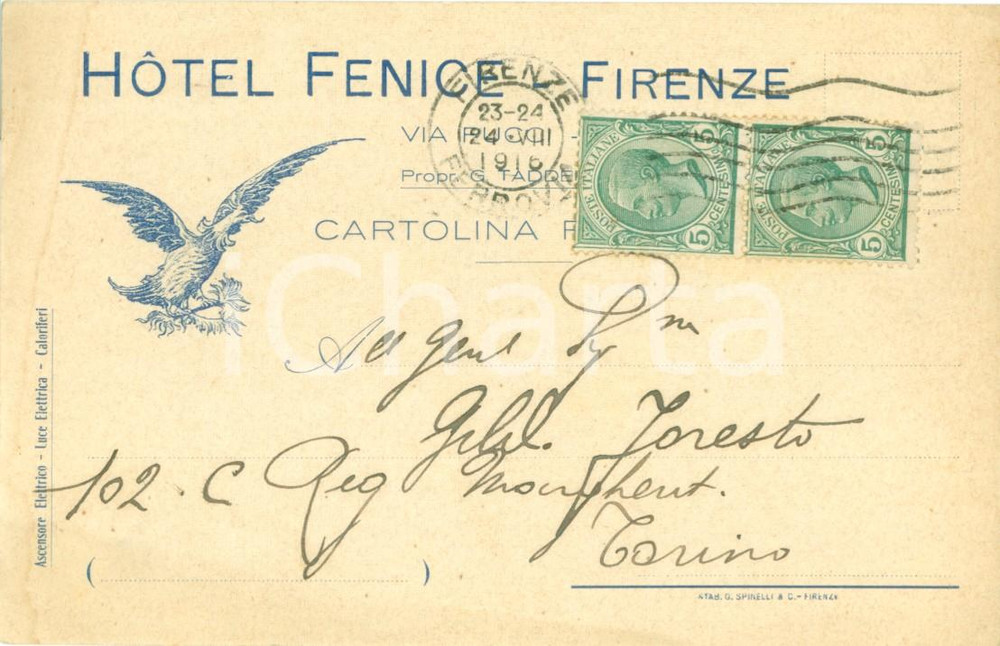 HÔTEL FENICE - FIRENZE
VIA PUCCI -
Propr. G. TADDE
CARTOLINA P
FIRENZE
23-24
24·VIII
1916
FERROVIA
POSTE ITALIANE
CENTESIMI
5 5
POSTE ITALIANE
CENTESIMI
5 5
iCharta
All gent
Torino
102 · C Reg Margherit.
Ascensore Elettrico - Luce Elettrica - Caloriferi
( )
STAB. G. SPINELLI & C. - FIRENZE